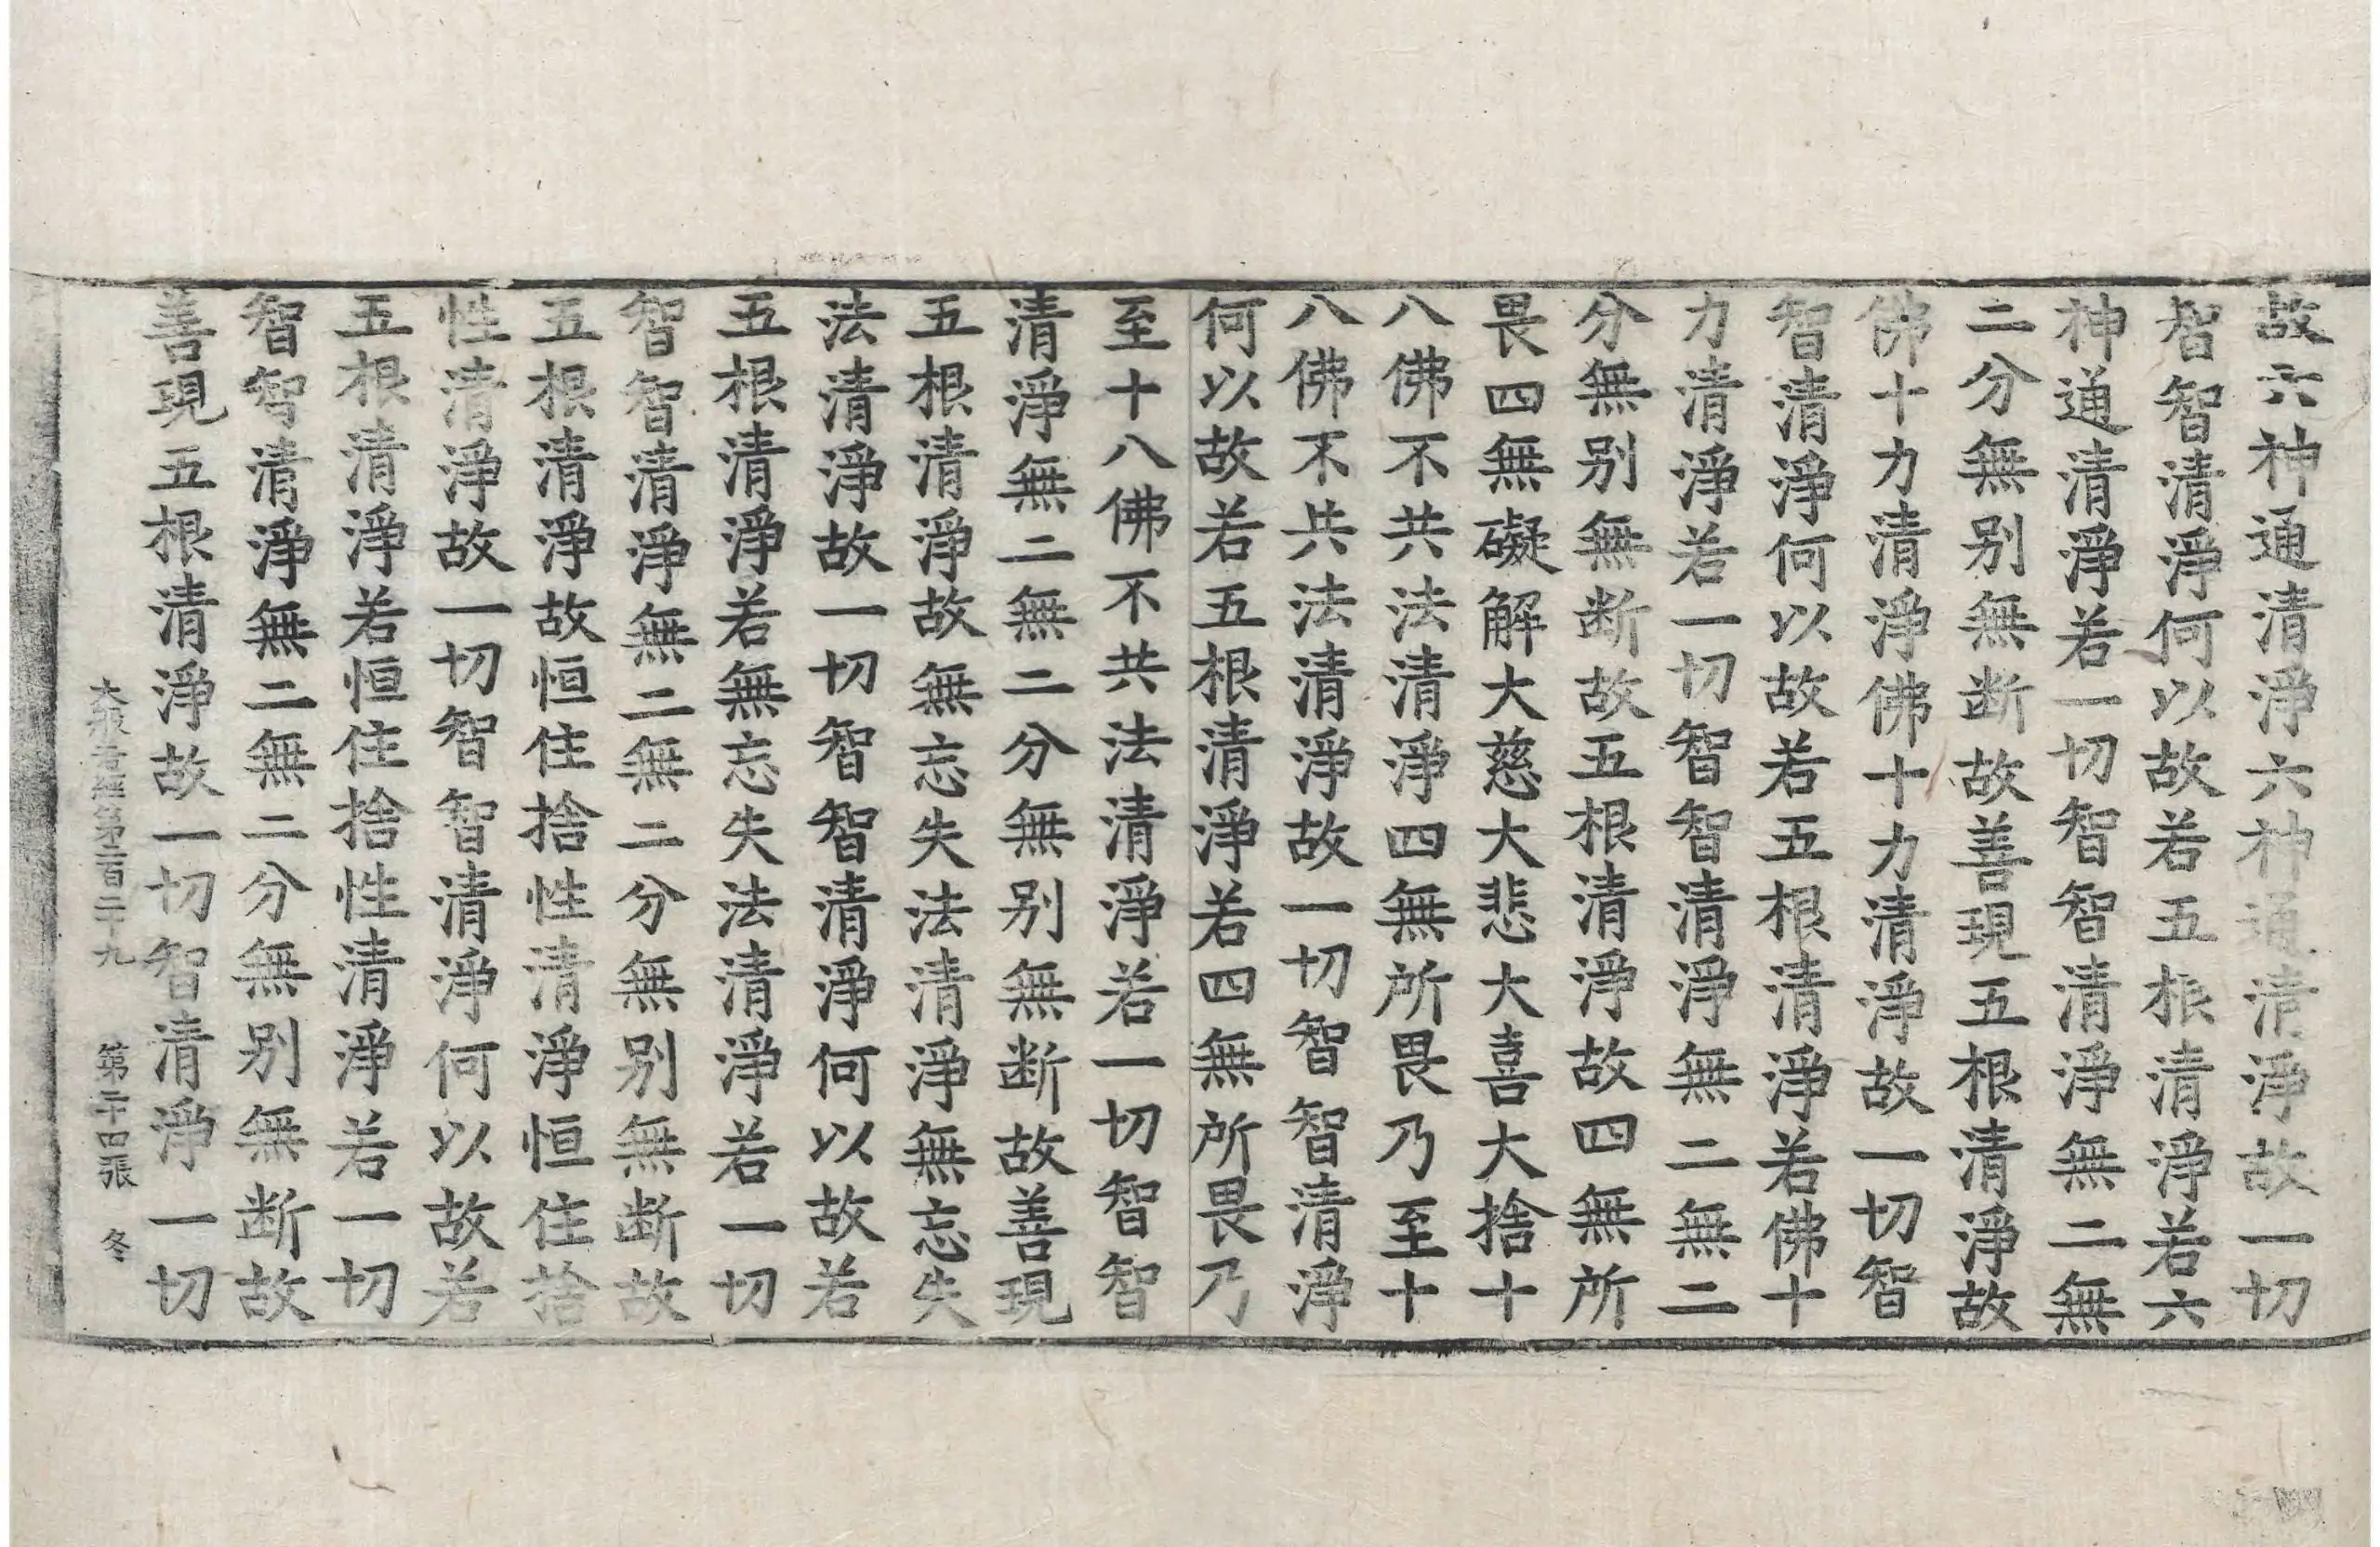 故六神通清淨六神通清淨故一切
智智清淨何以故若五根清淨若六
神通清淨若一切智智清淨無二無
二分無別無断故善現五根清淨故
佛十力清淨佛十力清淨故一切智
智清淨何以故若五根清淨若佛十
力清淨若一切智智清淨無二無二
分無別無断故五根清淨故四無所
畏四無礙解大慈大悲大喜大捨十
八佛不共法清淨四無所畏乃至十
八佛不共法清淨故一切智智清淨
何以故若五根清淨若四無所畏乃
至十八佛不共法清淨若一切智智
清淨無二無二分無別無断故善現
五根清淨故無忘失法清淨無忘失
法清淨故一切智智清淨何以故若
五根清淨若無忘失法清淨若一切
智智清淨無二無二分無別無断故
五根清淨故恒住捨性清淨恒住捨
性清淨故一切智智清淨何以故若
五根清淨若恒住捨性清淨若一切
智智清淨無二無二分無別無断故
善現五根清淨故一切智清淨一切
大般若經第二百二十九 第二十四張 冬